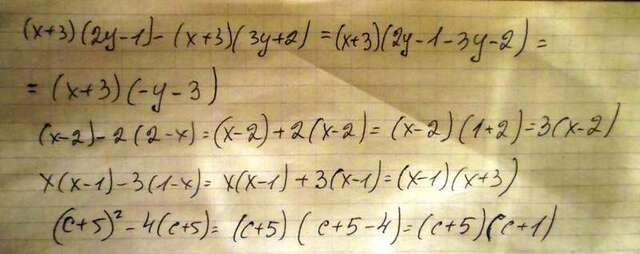 (x+3)(2y-1)-(x+3)(3y+2)=(x+3)(2y-1-3y-2)=
=(x+3)(-y-3)
(x-2)-2(2-x)=(x-2)+2(x-2)=(x-2)(1+2)=3(x-2)
x(x-1)-3(1-x)=x(x-1)+3(x-1)=(x-1)(x+3)
(c+5)²-4(c+5)=(c+5)(c+5-4)=(c+5)(c+1)